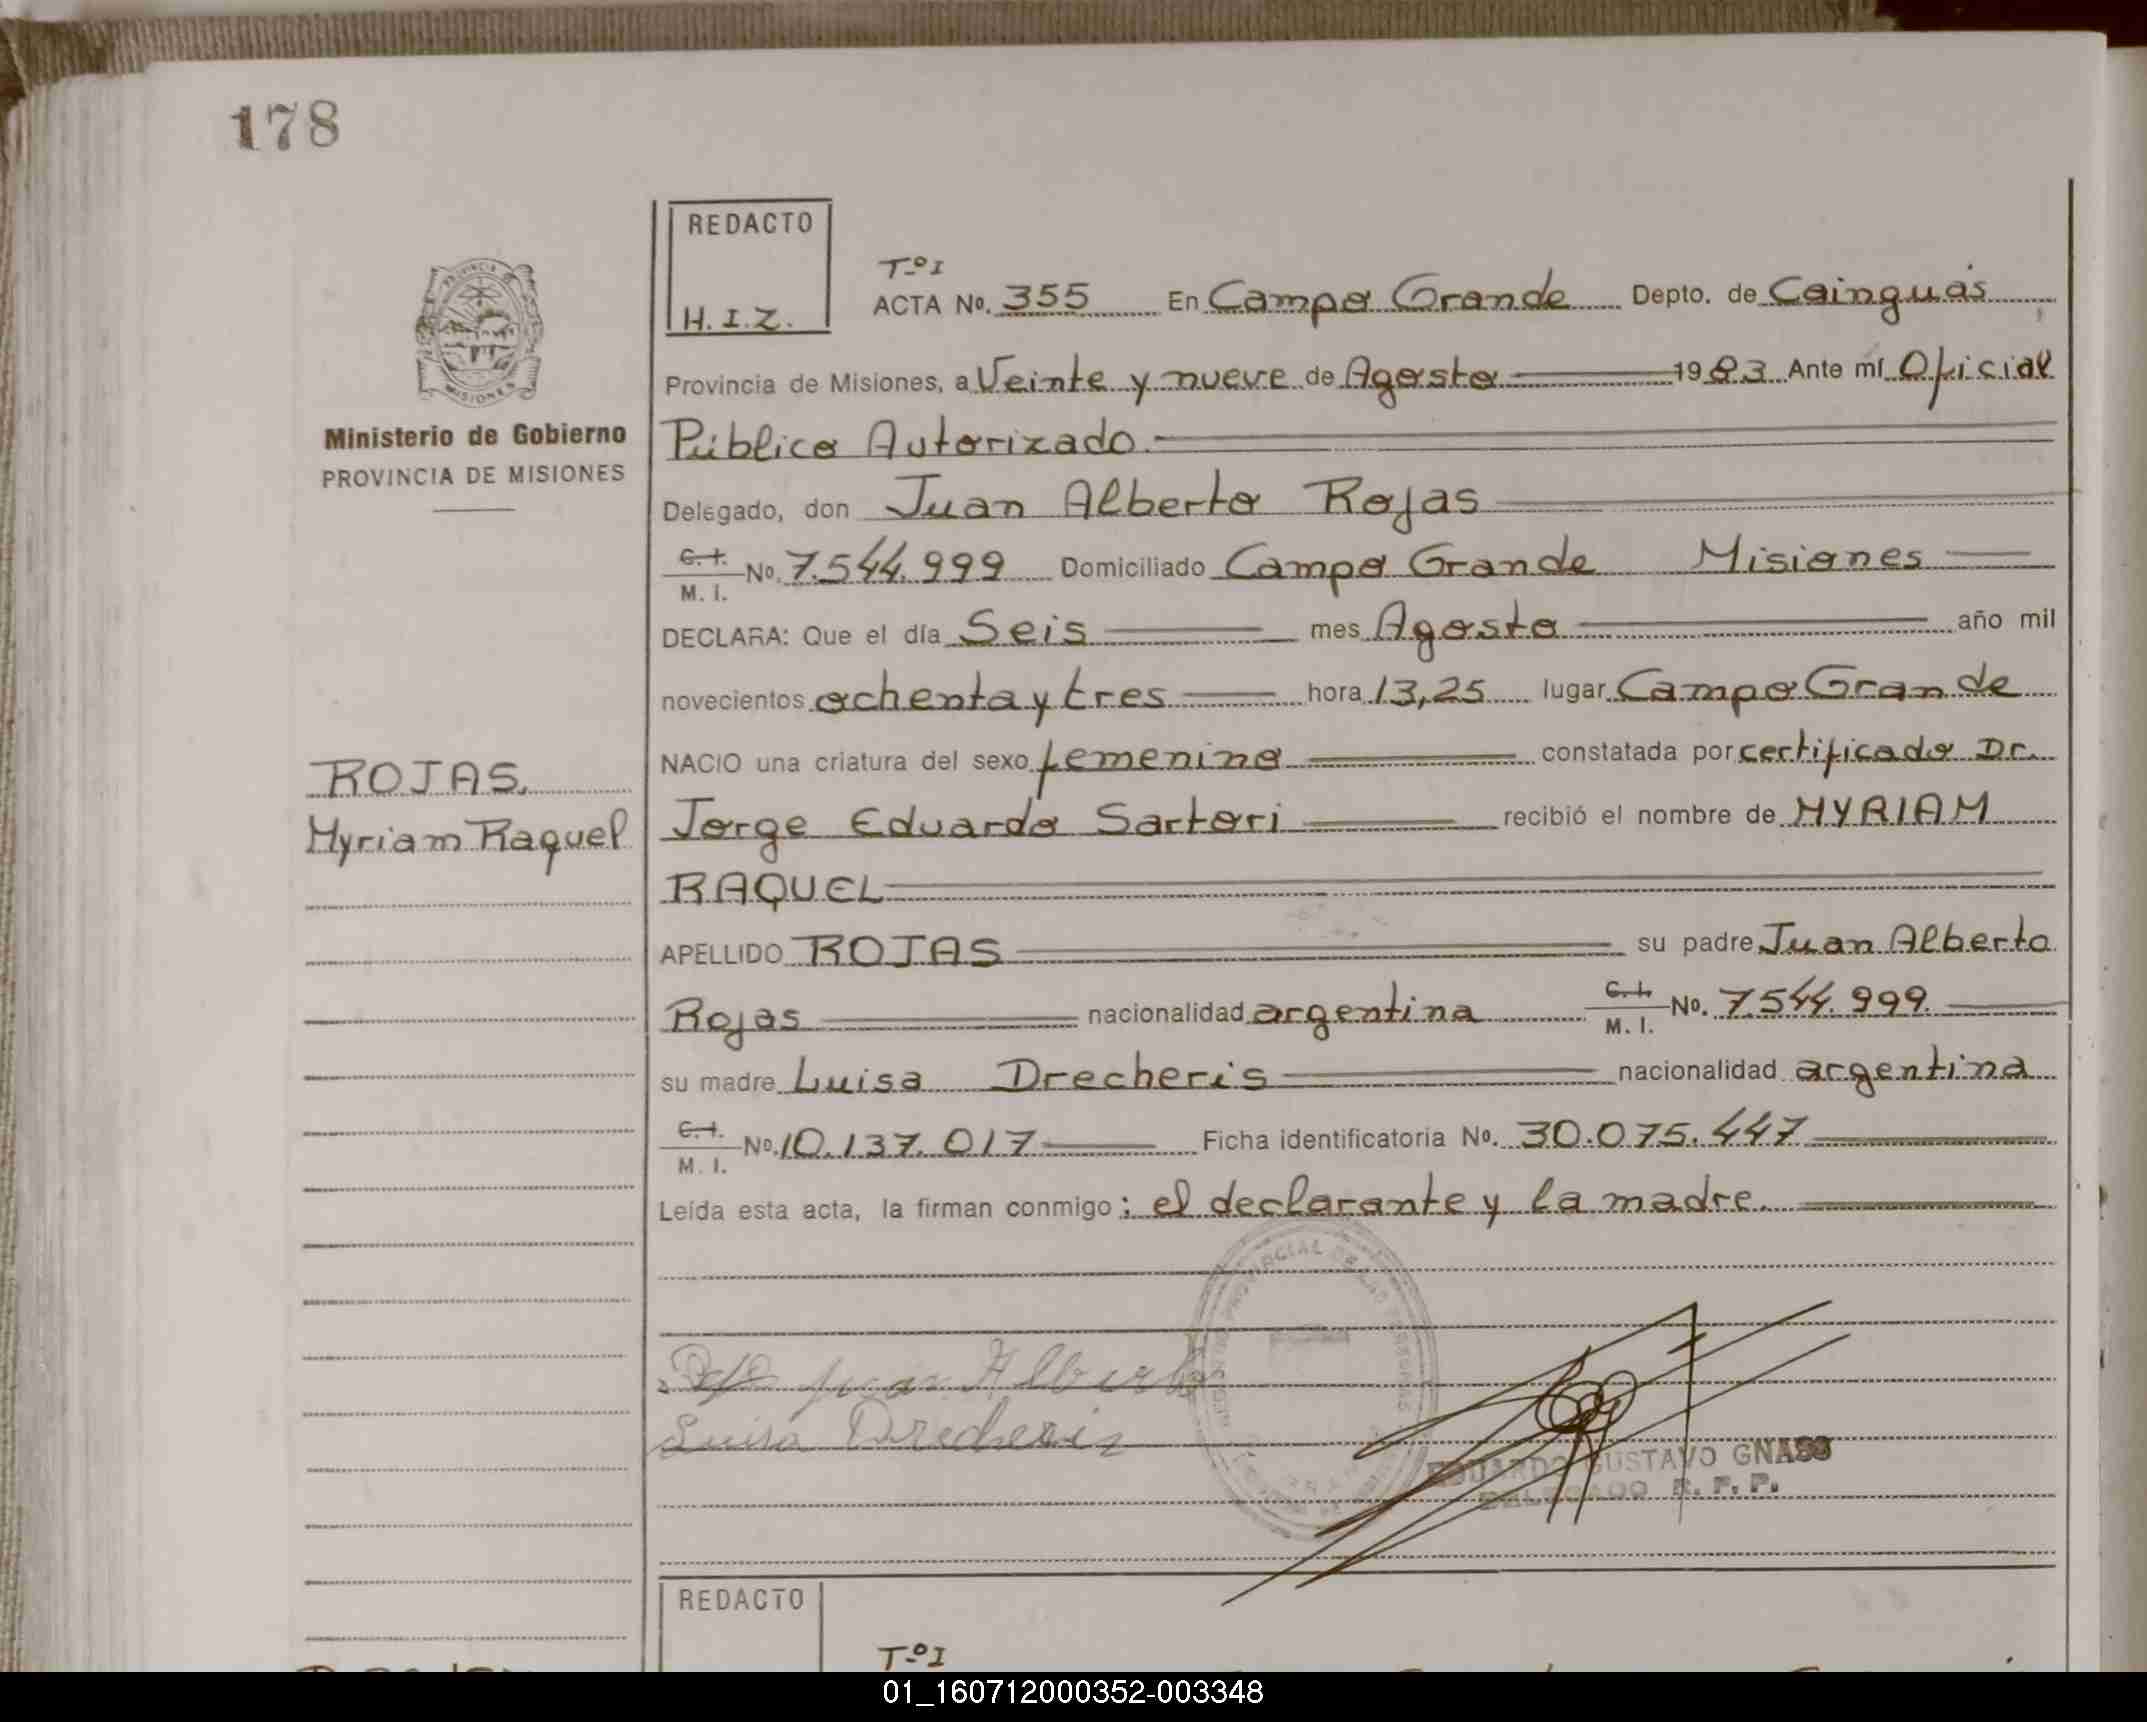 178
REDACTO
H.I.Z.
T-º I
ACTA Nº. 355 En Campo Grande Depto. de Cainguás
Provincia de Misiones, a Veinte y nueve de Agosto 1983 Ante mí Oficial
Público Autorizado.
Ministerio de Gobierno
PROVINCIA DE MISIONES
Delegado, don Juan Alberto Rojas
C. I. M. I. Nº. 7.544.999 Domiciliado Campo Grande Misiones
DECLARA: Que el día Seis mes Agosto año mil
novecientos ochenta y tres hora 13,25 lugar Campo Grande
NACIO una criatura del sexo femenino constatada por certificado Dr.
ROJAS,
Myriam Raquel
Jorge Eduardo Sartori recibió el nombre de MYRIAM
RAQUEL
APELLIDO ROJAS su padre Juan Alberto
Rojas nacionalidad argentina C. I. M. I. Nº. 7.544.999.
su madre Luisa Drecheris nacionalidad argentina
C. I. M. I. Nº. 10.137.017 Ficha identificatoria Nº. 30.075.447
Leída esta acta, la firman conmigo; el declarante y la madre.
Juan Alberto
Luisa Drecheris
EDUARDO GUSTAVO GNASS
DELEGADO R. P. P.
REDACTO
T-º I
01_160712000352-003348